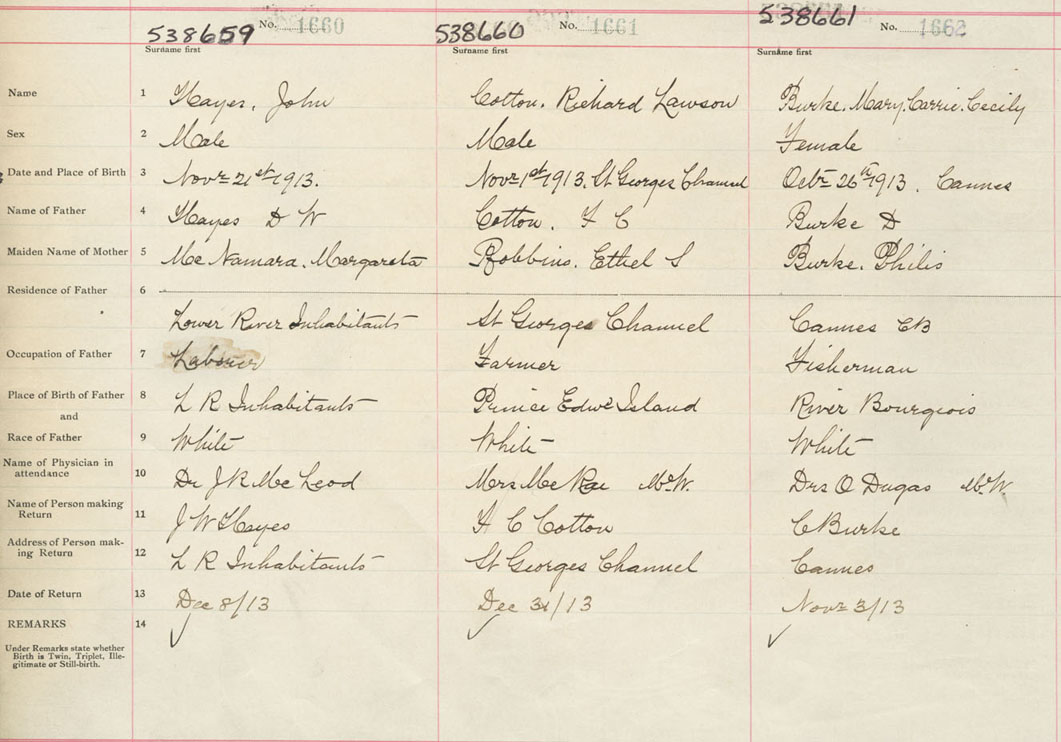 538659 No. 1660 538660 No. 1661 538661 No. 1662
Surname first Surname first Surname first
Name 1 Hayes, John Cotton. Richard Lawson Burke. Mary. Carrie. Cecily
Sex 2 Male Male Female
Date and Place of Birth 3 Novr 21st 1913. Novr 1st 1913. St Georges Channel Octr 26th 1913. Cannes
Name of Father 4 Hayes D W Cotton. F C Burke D
Maiden Name of Mother 5 Mc Namara. Margareta Robbins. Ethel S Burke. Philis
Residence of Father 6
Lower River Inhabitants St Georges Channel Cannes CB
Occupation of Father 7 Labourer Farmer Fisherman
Place of Birth of Father 8 L R Inhabitants Prince Edwd Island River Bourgeois
and
Race of Father 9 White White White
Name of Physician in
attendance 10 Dr J R Mc Leod Mrs Mc Rae M.W. Drs O Dugas M.W.
Name of Person making
Return 11 J W Hayes F C Cotton C Burke
Address of Person mak-
ing Return 12 L R Inhabitants St Georges Channel Cannes
Date of Return 13 Dec 8/13 Dec 31/13 Novr 3/13
REMARKS 14
Under Remarks state whether
Birth is Twin, Triplet, Ille-
gitimate or Still-birth.